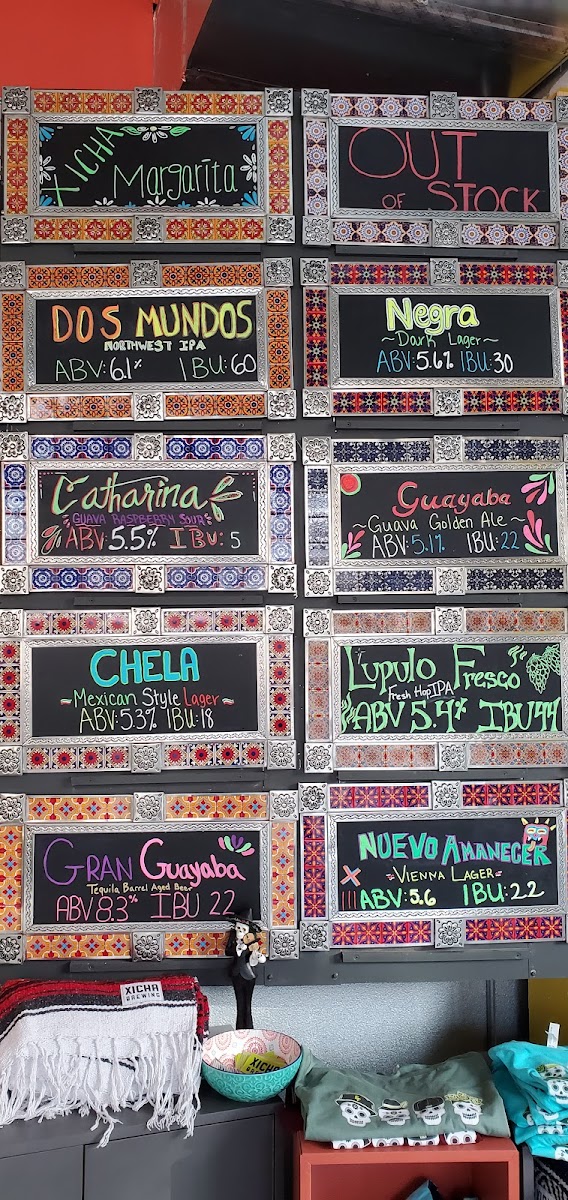 XICHA
Margarita
OUT
OF STOCK
DOS MUNDOS
NORTHWEST IPA
ABV: 6.1% IBU: 60
Negra
~Dark Lager~
ABV: 5.6% IBU: 30
Catharina
GUAVA RASPBERRY SOUR
ABV: 5.5% IBU: 5
Guayaba
~Guava Golden Ale~
ABV: 5.1% IBU: 22
CHELA
~Mexican Style Lager~
ABV: 5.3% IBU: 18
Lupulo Fresco
Fresh Hop IPA
ABV 5.4% IBU 44
GRAN Guayaba
Tequila Barrel Aged Beer
ABV 8.3% IBU 22
NUEVO AMANECER
VIENNA LAGER
ABV: 5.6 IBU: 22
XICHA
BREWING
XICHA